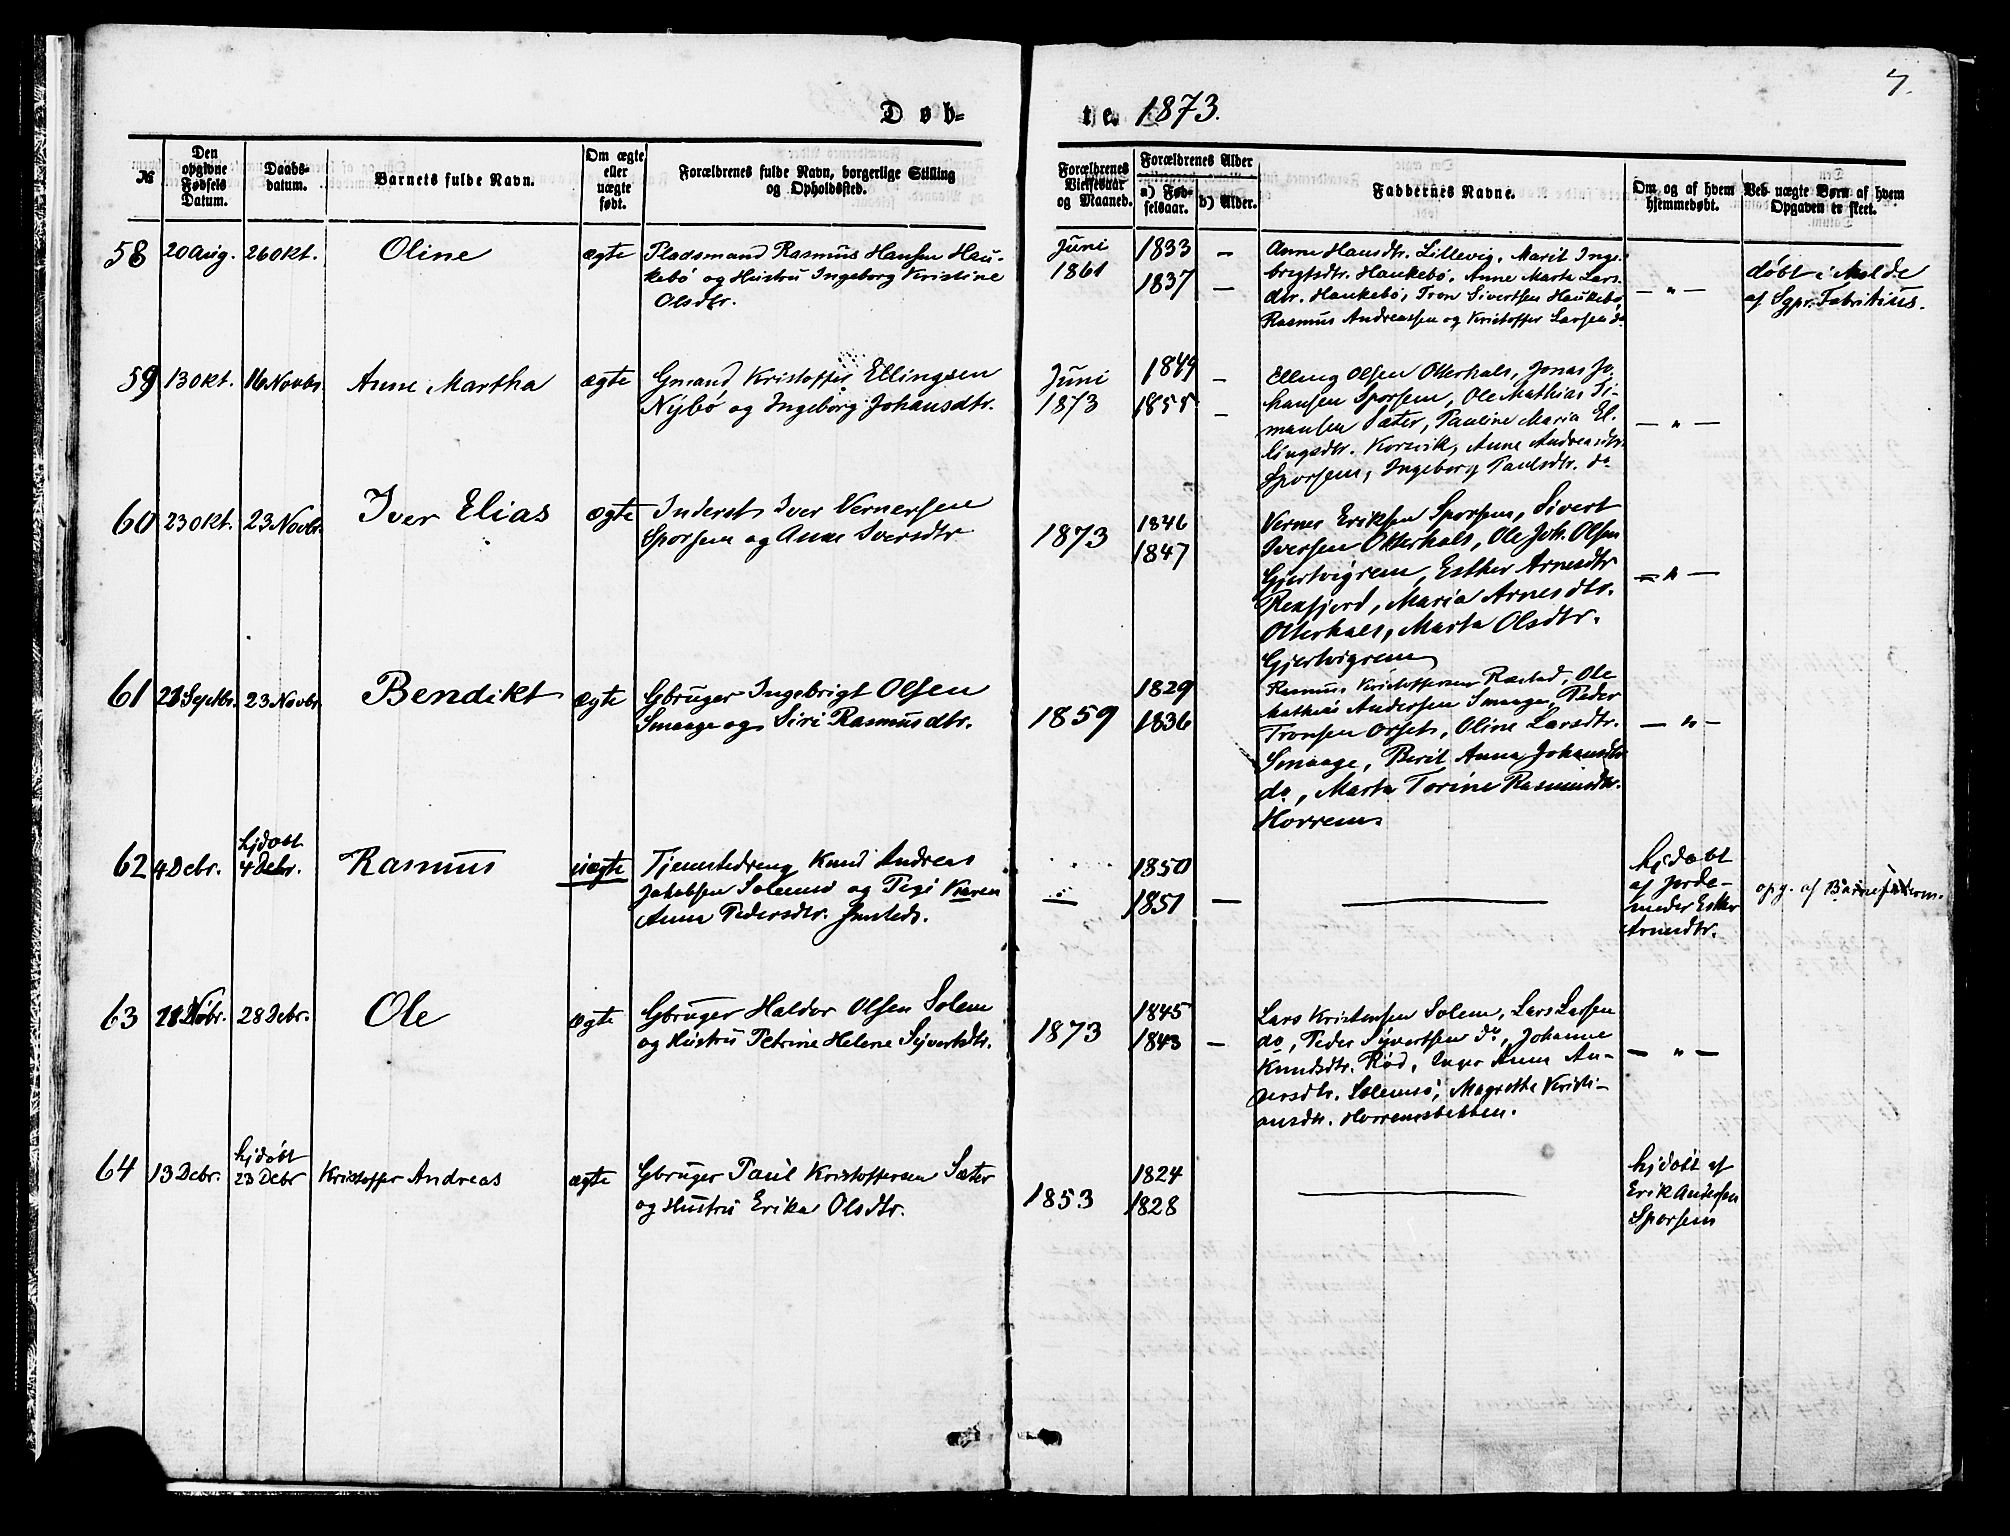 7.
Døb- te. 1873.
№
Den opgivne Fødsels Datum.
Daabs-datum.
Barnets fulde Navn.
Om ægte eller uægte født.
Forældrenes fulde Navn, borgerlige Stilling og Opholdssted.
Forældrenes Vielsesaar og Maaned.
Forældrenes Alder
a) Fød-selsaar.
b) Alder.
Faddernes Navne.
Om og af hvem hjemmedøbt.
Ved uægte Børn af hvem Opgaven er skeet.
58 20 Aug. 26 Okt. Oline ægte
Pladsmand Rasmus Hansen Hau-
kebø og Hustru Ingeborg Kristine
Olsdtr.
Juni
1861
1833 —
1837 —
Anne Hansdtr. Lillevig, Marit Inge-
brigtsdtr. Haukebø, Anne Marta Lars-
dtr. Haukebø, Tron Sivertsen Haukebø,
Rasmus Andreassen og Kristoffer Larsen do
— " —
døbt i Molde
af Sgpr. Fabritius.
59 13 Okt. 16 Novbr. Anne Martha ægte
Gmand Kristoffer Ellingsen
Nybø og Ingeborg Johansdtr.
Juni
1873
1849 —
1855 —
Elling Olsen Otterhals, Jonas Jo-
hansen Sporsem, Ole Mathias Si-
mansen Sæter, Pauline Maria El-
lingsdtr. Korsvik, Anne Andreasdtr.
Sporsem, Ingeborg Paulsdtr. do
— " —
60 23 Okt. 23 Novbr. Iver Elias ægte
Inderst Iver Vernersen
Sporsem og Anne Iversdtr
1873
1846
1847
Verner Eriksen Sporsem, Sivert
Iversen Otterhals, Ole Joh. Olsen
Gjertvigrem, Esther Arnesdtr
Rexfjord, Maria Arnesdtr.
Otterhals, Marta Olsdtr.
Gjertvigrem
— " —
61 Septbr. 23 Novbr. Bendikt ægte
Gbruger Ingebrigt Olsen
Smaage og Siri Rasmusdtr.
1859
1829
1836
Rasmus Kristoffersen Ræstad, Ole
Mathias Andersen Smaage, Peder
Tronsen Orset, Oline Larsdtr.
Smaage, Berit Anna Johansdtr
do, Marta Torine Rasmusdtr.
Horrem
— " —
62 4 Debr. hjdøbt
4 Debr. Rasmus uægte
Tjenestedreng Knud Andreas
Jakobsen Solemsø og Pige Karen
Anna Pedersdtr.
1850
1851 —
hjdøbt
af Jorde-
moder Esther
Arnesdtr.
opg. af Barnefaderen.
63 28 Debr. Ole ægte
Gbruger Haldor Olsen Solem
og Hustru Petrine Helene Syvertsdtr.
1873
1845
1843 —
Lars Kristensen Solem, Lars Larsen
do, Peder Syvertsen do, Johanne
Knudsdtr. Rød, Inger Anna An-
dersdtr. Solemsø, Magrethe Kristi-
ansdtr. Horremsbakken.
— " —
64 13 Debr. hjdøbt
23 Debr Kristoffer Andreas ægte
Gbruger Paul Kristoffersen Sæter
og Hustru Erika Olsdtr.
1853
1824
1828
hjdøbt af
Erik Andersen
Sporsem